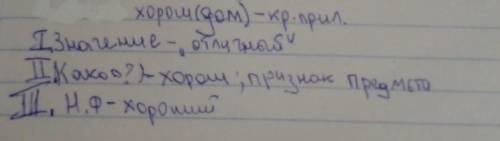 хорош(дом) - кр. прил.
I. Значение - „отличный"
II. Каков? - хорош; признак предмета
III. Н.Ф - хороший